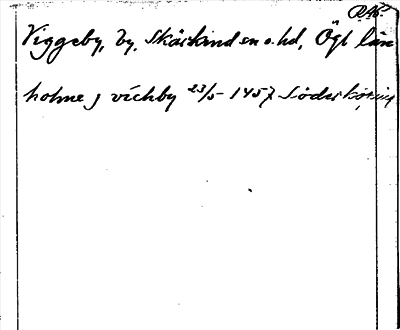 Viggeby, by, Skärkind sn o. hd, Ögl län
holme j vichby 23/5 1457 Söderköping